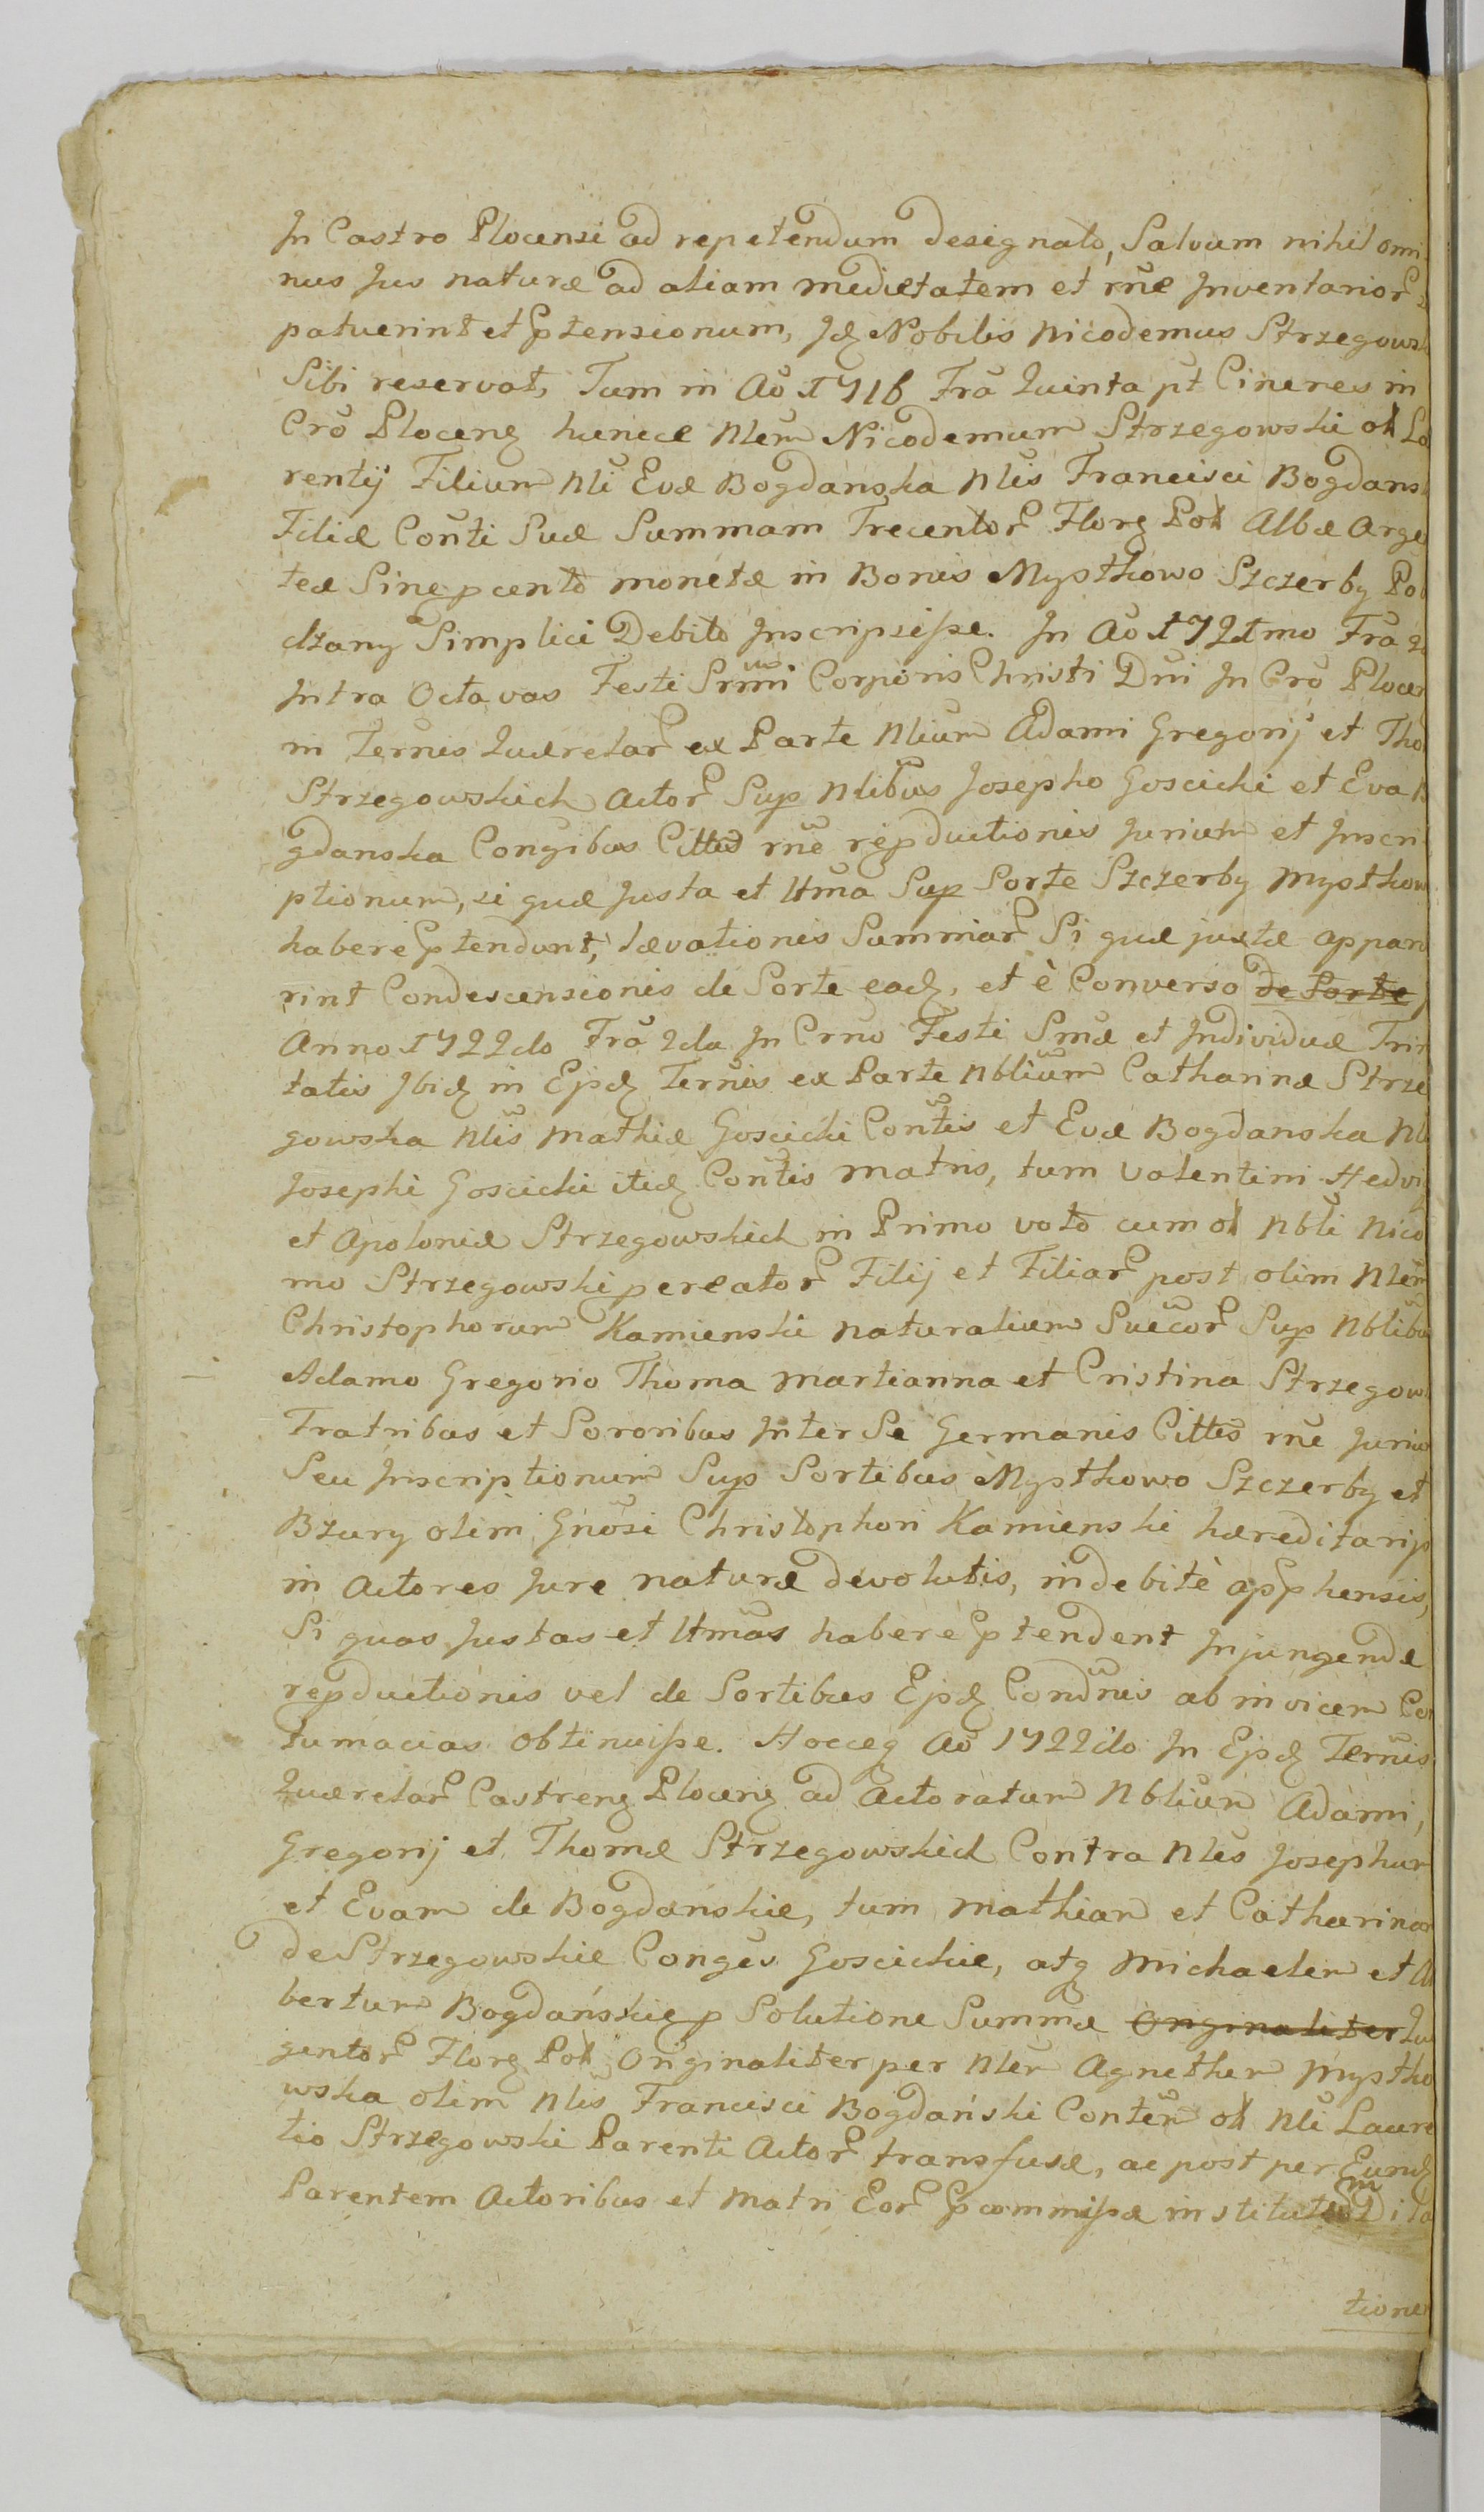 In Castro Plocensi ad repetendum designato, Salvum nihil omi
nus Jus naturæ ad aliam medietatem et rñe Inventarior
patuerint et Ptensionum, Jdʒ Nobilis Nicodemus Strzegows
Sibi reservat, Tum in Aõ 1716 Fra Quinta pt Cineres in
Crõ Plocenʒ hunice Nlem Nicodemum Strzegowski ol La
rentij Filium Nli Evæ Bogdanska Nlis Francisci Bogdans
Filiæ Conti Suæ Summam Trecentor Florʒ Pol Albæ Arge
teæ Sine pcento monetæ in Bonis Mysthowo Szczerby Po
dzany Simplici Debito Inscripsisse. In Aõ 1721mo Fra 2
Intra Octavas Festi Srmi Corporis Christi Dni In Crõ Plocen
in Ternis Quærelar ex Parte Nlium Adami Gregorij et Tho
Strzegowskich Actor Sup Nlibus Josepho Goscicki et Eva B
gdanska Congibus Cittis rñe repductionis Jurium et Inscri
ptionum, si quæ Justa et ltma Sup Sorte Szczerby Mysthow
habere Ptendunt, lævationis Summar Si quæ justæ appar
rint Condescensionis de Sorte eadʒ, et è Converso de Sorte
Anno 1722do Fra 2da In Crno Festi Smæ et Individuæ Trin
tatis Ibidʒ in Ejpdʒ Ternis ex Parte Nblium Catharinæ Strze
gowska Nlis Mathiæ Goscicki Contis et Evæ Bogdanska Nl
Josephi Goscicki itidʒ Contis matris, tum Valentini Hedvi
et Apoloniæ Strzegowskich in Primo voto cum ol Nbli Nico
mo Strzegowski pcreator Filij et Filiar post olim Nlem
Christophorum Kamienski naturalium Succor Sup Nblibu
Adamo Gregorio Thoma Martianna et Cristina Strzegow
Fratribus et Sororibus Inter Se Germanis Cittis rñe Juriu
Seu Inscriptionum Sup Sortibus Mysthowo Szczerby et
Bzury olim Gnosi Christophori Kamienski hæreditarijs
in Actores Jure naturæ devolutis, indebitè apphensis,
Si quas Justas et ltmas habere Ptendent Injungendæ
repductionis vel de Sortibus Ejpdʒ Condnis ab invicem Co
tumacias obtinuisse. Hocceq Aõ 1722do In Ejpdʒ Ternis
Quærelar Castrenʒ Plocenʒ ad Actoratum Nblium Adami,
Gregorij et Thomæ Strzegowskich Contra Nles Josephum
et Evam de Bogdanskie, tum Mathiam et Catharinam
de Strzegowskie Conges Goscickie, atq Michaelem et A
bertum Bogdańskie p Solutione Summæ Originaliter Qu
gentor Florʒ Pol Originaliter per Nlem Agnethem Mystho
wska olim Nlis Francisci Bogdański Contem ol Nli Laure
tio Strzegowski Parenti Actor transfusæ, ac post per Eundʒ
Parentem Actoribus et Matri Eor Pcommissæ institutam Dila
tione